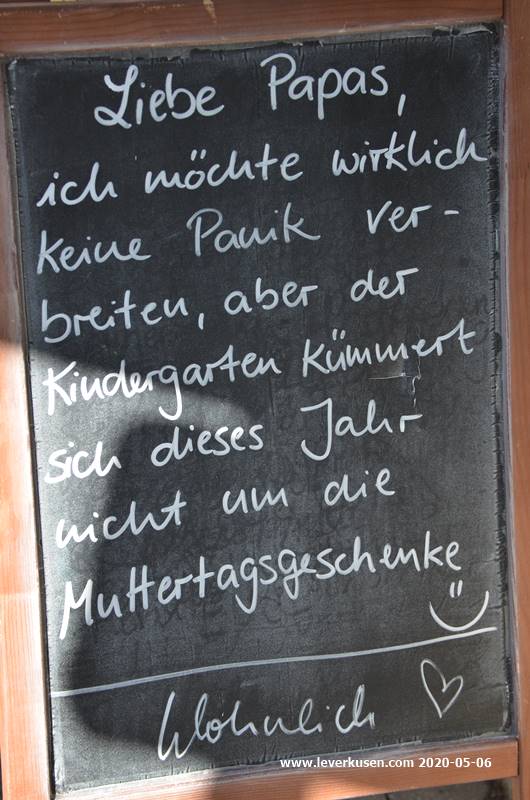 Liebe Papas,
ich möchte wirklich
keine Panik ver-
breiten, aber der
Kindergarten kümmert
sich dieses Jahr
nicht um die
Muttertagsgeschenke
Wohnlich
www.leverkusen.com 2020-05-06